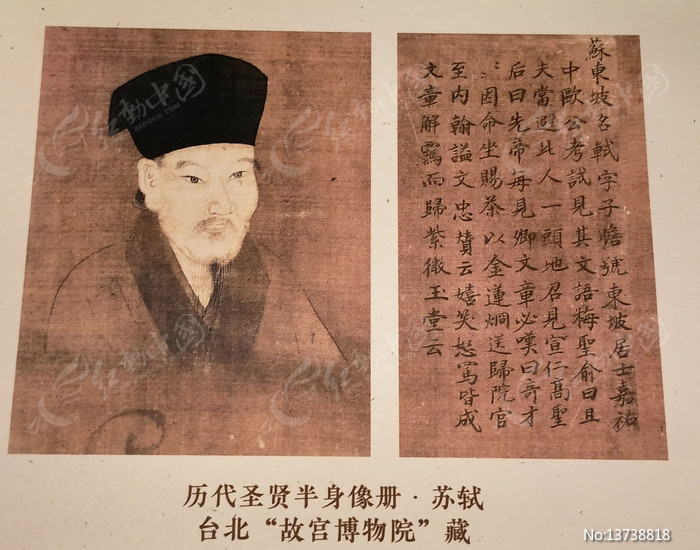 蘇東坡名軾字子瞻號東坡居士嘉祐
中歐公考試見其文語梅聖俞曰且
夫當避此人一頭地召見宣仁高聖
后曰先帝每見卿文章必嘆曰奇才
〻因命坐賜茶以金蓮烱送歸院官
至内翰謚文忠贊云嬉笑怒罵皆成
文章解而歸紫微玉堂云
历代圣贤半身像册·苏轼
台北“故宫博物院”藏
红動中國
REDOCN.COM
No:13738818